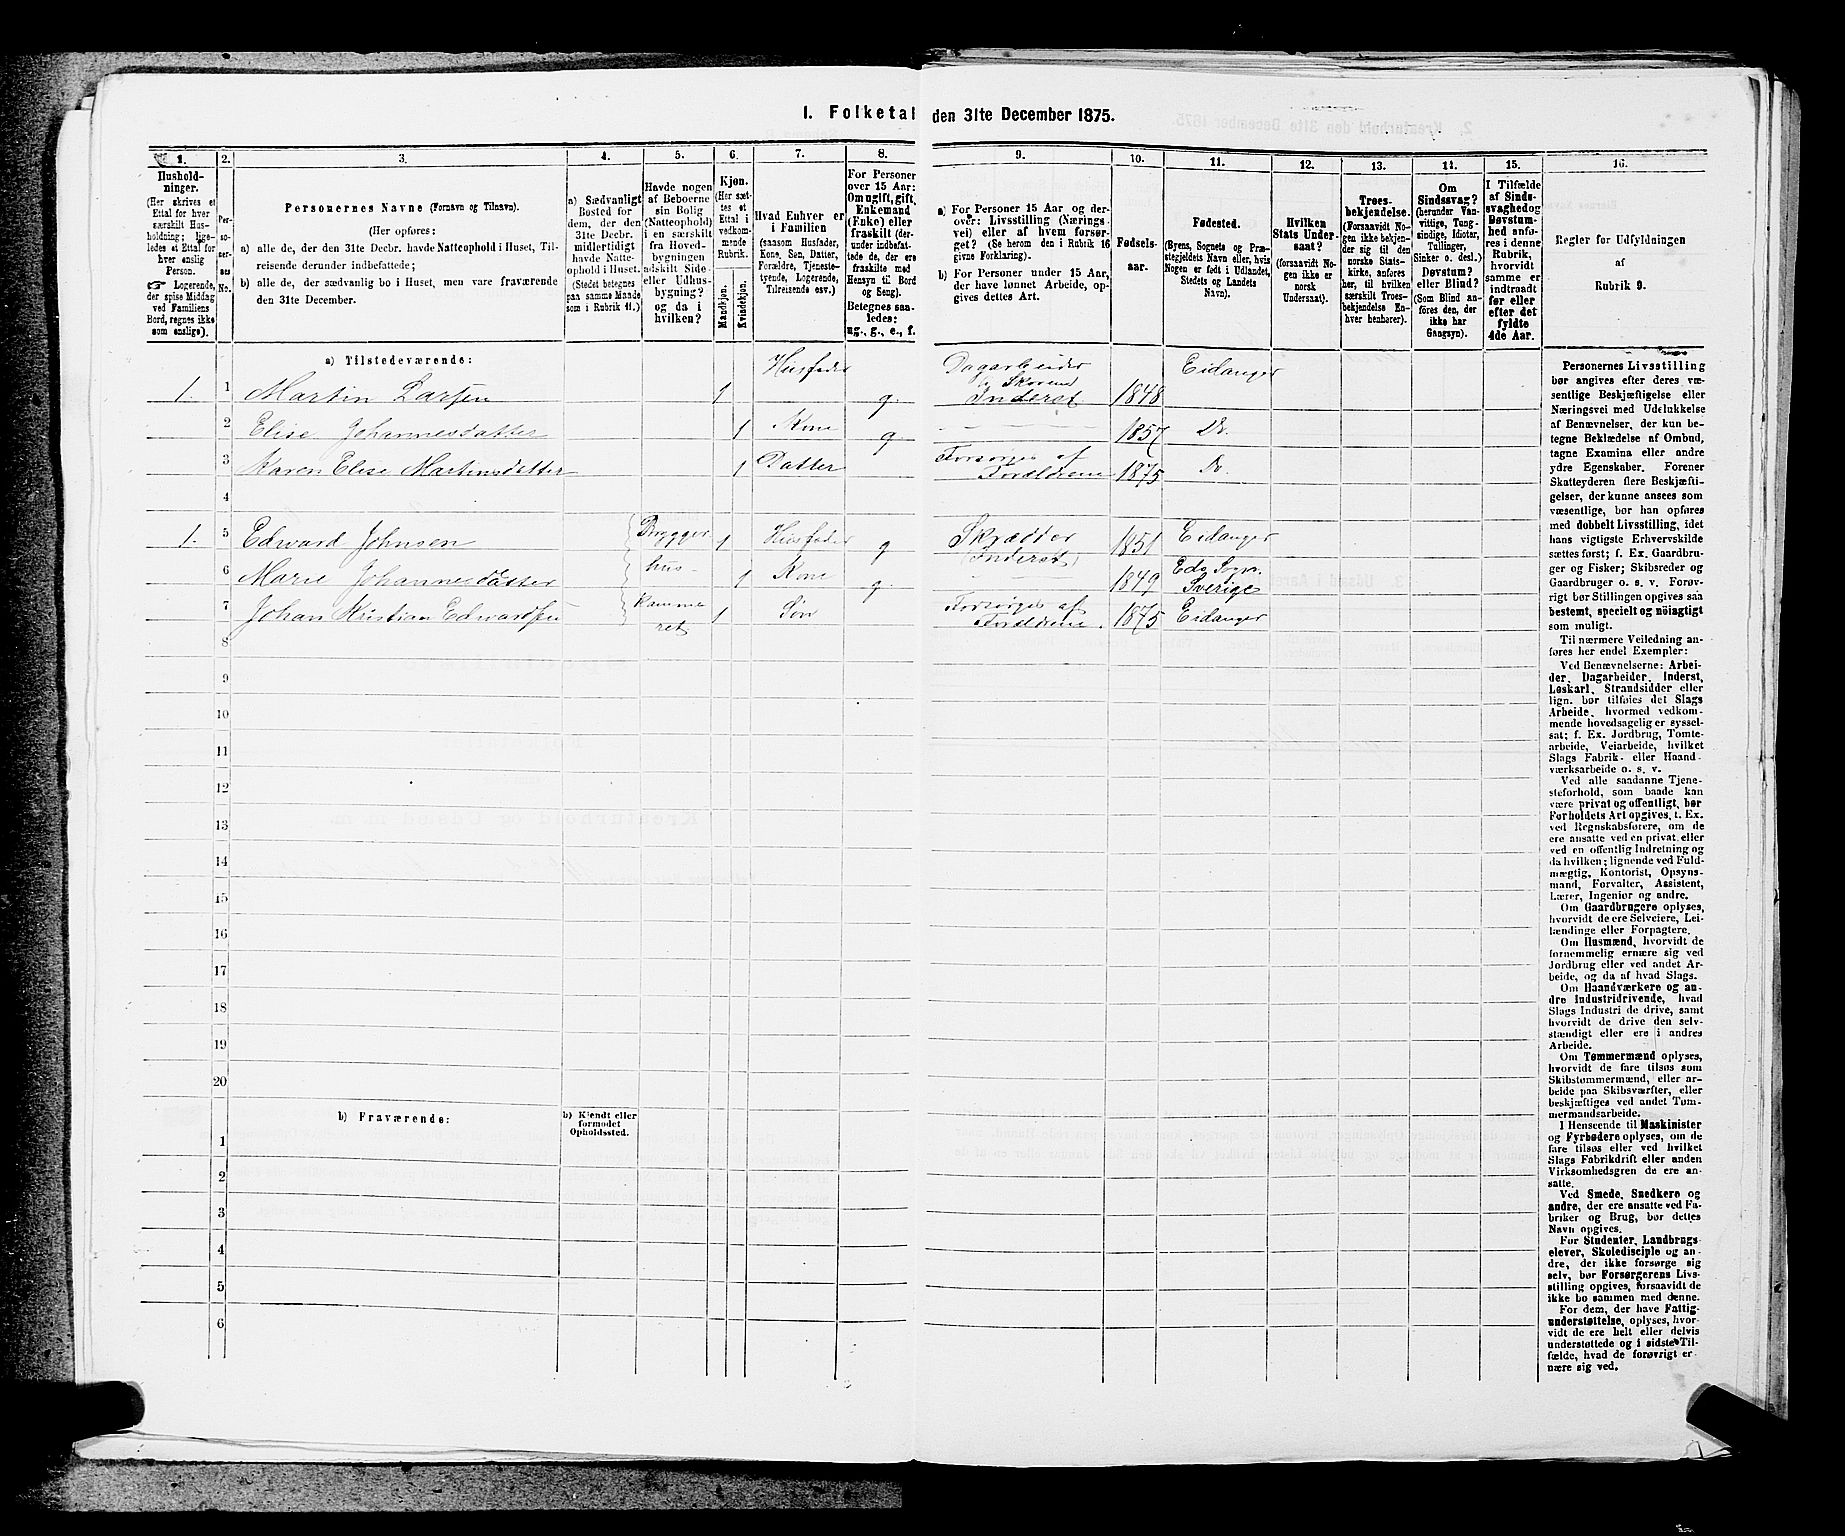 I. Folketal den 31te December 1875.
1.
2.
3.
4.
5.
6.
7.
8.
9.
10.
11.
12.
13.
14.
15.
16.
Hushold-
ninger.
(Her skrives et
Ettal for hver
særskilt Hus-
holdning; lige-
ledes et Ettal for
hver enslig
Person.
Logerende,
der spise Middag
ved Familiens
Bord, regnes ikke
som enslige).
Per-
so-
ner-
nes
No.
Personernes Navne (Fornavn og Tilnavn).
(Her opføres:
a) alle de, der den 31te Decbr. havde Natteophold i Huset, Til-
reisende derunder indbefattede;
b) alle de, der sædvanlig bo i Huset, men vare fraværende
den 31te December.
a) Sædvanligt
Bosted for
dem, der den
31te Decbr.
midlertidigt
havde Natte-
ophold i Huset.
(Stedet betegnes
paa samme Maade
som i Rubrik 11.)
Havde nogen
af Beboerne
sin Bolig
(Natteophold)
i en særskilt
fra Hoved-
bygningen
adskilt Side-
eller Udhus-
bygning?
og da i
hvilken?
Kjøn.
(Her sæt-
tes et
Ettal i
vedkom-
mende
Rubrik.
Mandkjøn.
Kvindekjøn.
Hvad Enhver er
i Familien
(saasom Husfader,
Kone, Søn, Datter,
Forældre, Tjeneste-
tyende, Logerende,
Tilreisende osv.)
For Personer
over 15 Aar:
Om ugift, gift,
Enkemand
(Enke) eller
fraskilt (der-
under indbefat-
tede de, der ere
fraskilte med
Hensyn til Bord
og Seng).
Betegnes saa-
ledes:
ug., g., e., f.
a) For Personer 15 Aar og der-
over: Livsstilling (Nærings-
vei) eller af hvem forsør-
get? (Se herom den i Rubrik 16
givne Forklaring).
b) For Personer under 15 Aar,
der have lønnet Arbeide, op-
gives dettes Art.
Fødsels-
aar.
Fødested.
(Byens, Sognets og Præ-
stegjeldets Navn eller, hvis
Nogen er født i Udlandet,
Stedets og Landets
Navn).
Hvilken
Stats Under-
saat?
(forsaavidt No-
gen ikke er
norsk
Undersaat).
Troes-
bekjendelse.
(Forsaavidt No-
gen ikke bekjen-
der sig til den
norske Stats-
kirke, anføres
her, til hvilken
særskilt Troes-
bekjendelse En-
hver henhører).
Om
Sindssvag?
(herunder Van-
vittige, Tung-
sindige, Idioter,
Tullinger,
Sinker o. desl.)
Døvstum?
eller Blind?
(Som Blind an-
føres den, der
ikke har
Gangsyn).
I Tilfælde
af Sinds-
svaghed og
Døvstum-
hed anfø-
res i denne
Rubrik,
hvorvidt
samme er
indtraadt
før eller
efter det
fyldte
4de Aar.
Regler for Udfyldningen
af
Rubrik 9.
a) Tilstedeværende:
1. 1 Martin Larsen 1 Husfader g. Dagarbeider Inderst 1848 Eidanger
2 Elise Johannesdatter 1 Kone g. 1857 Do.
3 Karen Elise Martinsdatter 1 Datter Forsørges af Forældrene 1875 Do.
4
1. 5 Edward Johnsen Brygger 1 Husfader g Skrædder (Inderst) 1851 Eidanger
6 Marie Johannesdatter hus- 1 Kone g. 1849 Eda Sogn. Sverige
7 Johan Kristian Edwardsen kammeret 1 Søn Forsørges af Forældrene. 1875 Eidanger
8
9
10
11
12
13
14
15
16
17
18
19
20
b) Fraværende:
b) Kjendt eller
formodet
Opholdssted.
1
2
3
4
5
6
Personernes Livsstilling
bør angives efter deres væ-
sentlige Beskjæftigelse eller
Næringsvei med Udelukkelse
af Benævnelser, der kun be-
tegne Beklædelse af Ombud,
tagne Examina eller andre
ydre Egenskaber. Forener
Skatteyderen flere Beskjæfti-
gelser, der kunne ansees som
væsentlige, bør han opføres
med dobbelt Livsstilling, idet
hans vigtigste Erhvervskilde
sættes først; f. Ex. Gaardbru-
ger og Fisker; Skibsreder og
Gaardbruger o. s. v. Forøv-
rigt bør Stillingen opgives saa
bestemt, specielt og nøiagtigt
som muligt.
Til nærmere Veiledning an-
føres her endel Exempler:
Ved Benævnelserne: Arbei-
der, Dagarbeider, Inderst,
Løskarl, Strandsidder eller
lign. bør tilføies det Slags
Arbeide, hvormed vedkom-
mende hovedsagelig er syssel-
sat; f. Ex. Jordbrug, Tomte-
arbeide, Veiarbeide, hvilket
Slags Fabrik- eller Haand-
værksarbeide o. s. v.
Ved alle saadanne Tjene-
steforhold, som baade kan
være privat og offentligt, bør
Forholdets Art opgives, t. Ex.
ved Regnskabsførere, om de
ere ansatte ved en privat eller
ved en offentlig Indretning og
da hvilken; lignende ved Fuld-
mægtig, Kontorist, Opsyns-
mand, Forvalter, Assistent,
Lærer, Ingeniør og andre.
Om Gaardbrugere oplyses,
hvorvidt de ere Selveiere, Lei-
lændinge eller Forpagtere.
Om Husmænd, hvorvidt de
fornemmelig ernære sig ved
Jordbrug eller ved andet Ar-
beide, og da af hvad Slags.
Om Haandværkere og an-
dre Industridrivende, hvad
Slags Industri de drive, samt
hvorvidt de drive den selv-
stændigt eller ere i andres
Arbeide.
Om Tømmermænd oplyses,
hvorvidt de fare tilsøs som
Skibstømmermænd, eller ar-
beide paa Skibsværfter, eller
beskjæftiges ved andet Tøm-
mermandsarbeide.
I Henseende til Maskinister
og Fyrbødere oplyses, om de
fare tilsøs eller ved hvilket
Slags Fabrikdrift eller anden
Virksomhedsgren de ere an-
satte.
Ved Smede, Snedkere og
andre, der ere ansatte ved Fa-
briker og Brug, bør dettes
Navn opgives.
For Studenter, Landbrugs-
elever, Skoledisciple og an-
dre, der ikke forsørge sig
selv, bør Forsørgerens Livs-
stilling opgives, forsaavidt de
ikke bo sammen med denne.
For dem, der have Fattig-
understøttelse, oplyses, hvor-
vidt de ere helt eller delvis
understøttede og i sidste Til-
fælde, hvad de forøvrigt er-
nære sig ved.